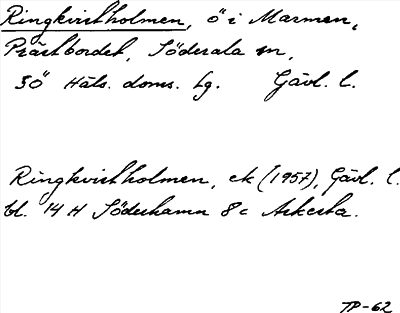 Ringkvistholmen, ö i Marmen,
Prästbordet, Söderala sn,
SÖ Häls. doms. tg. Gävl. l.
Ringkvistholmen, ek (1957), Gävl. l.
bl. 14 H Söderhamn 8 c Askesta.
TP-62